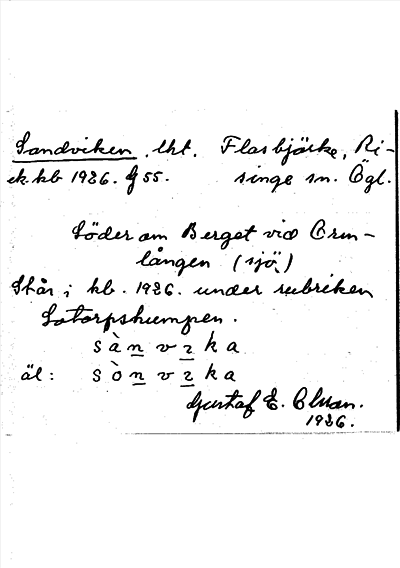 Sandviken, lht. Flasbjärke, Ri-
ek. kb 1926. § 55. singe sn. Ögl.
Söder om Berget vid Orm-
lången (sjö)
Står i kb. 1926. under rubriken
Sotorpskumpen.
s à n v ɪ k a
äl: s ò n v ɪ k a
Gustaf E. Clvan.
1926.